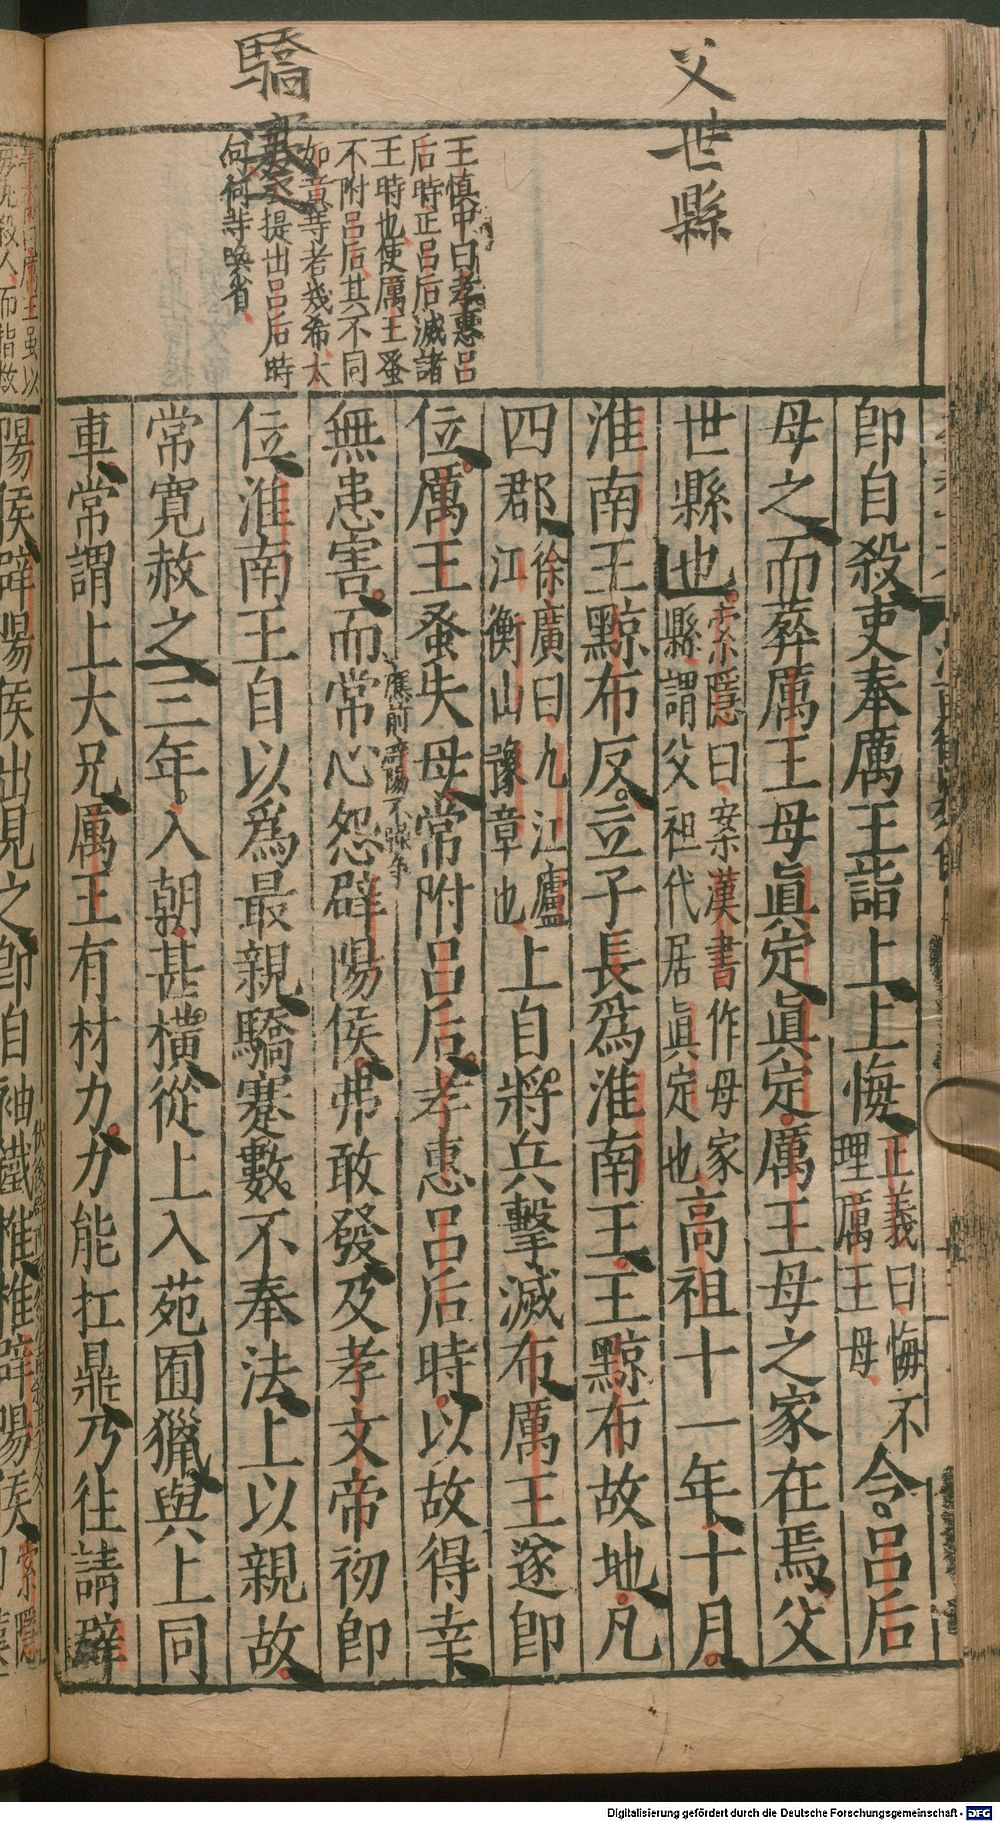 父世縣
驕蹇
王慎中曰孝惠呂
后時正呂后滅諸
王時也使厲王蚤
不附呂后其不同
如意等者幾希太
史提出呂后時
何何等喚省
即自殺吏奉厲王詣上上悔正義曰悔不理厲王母令呂后
母之而葬厲王母真定真定厲王母之家在焉父
世縣也索隱曰案漢書作母家縣謂父祖代居真定也高祖十一年十月
淮南王黥布反立子長為淮南王王黥布故地凡
四郡徐廣曰九江廬江衡山豫章也上自將兵擊滅布厲王遂即
位厲王蚤失母常附呂后孝惠呂后時以故得幸
無患害而常心怨辟陽侯弗敢發及孝文帝初即
應前辟陽不強爭
位淮南王自以為最親驕蹇數不奉法上以親故
常寬赦之三年入朝甚橫從上入苑囿獵與上同
車常謂上大兄厲王有材力力能扛鼎乃往請辟
陽侯辟陽侯出見之即自袖鐵椎椎辟陽侯索隱
Digitalisierung gefördert durch die Deutsche Forschungsgemeinschaft - DFG